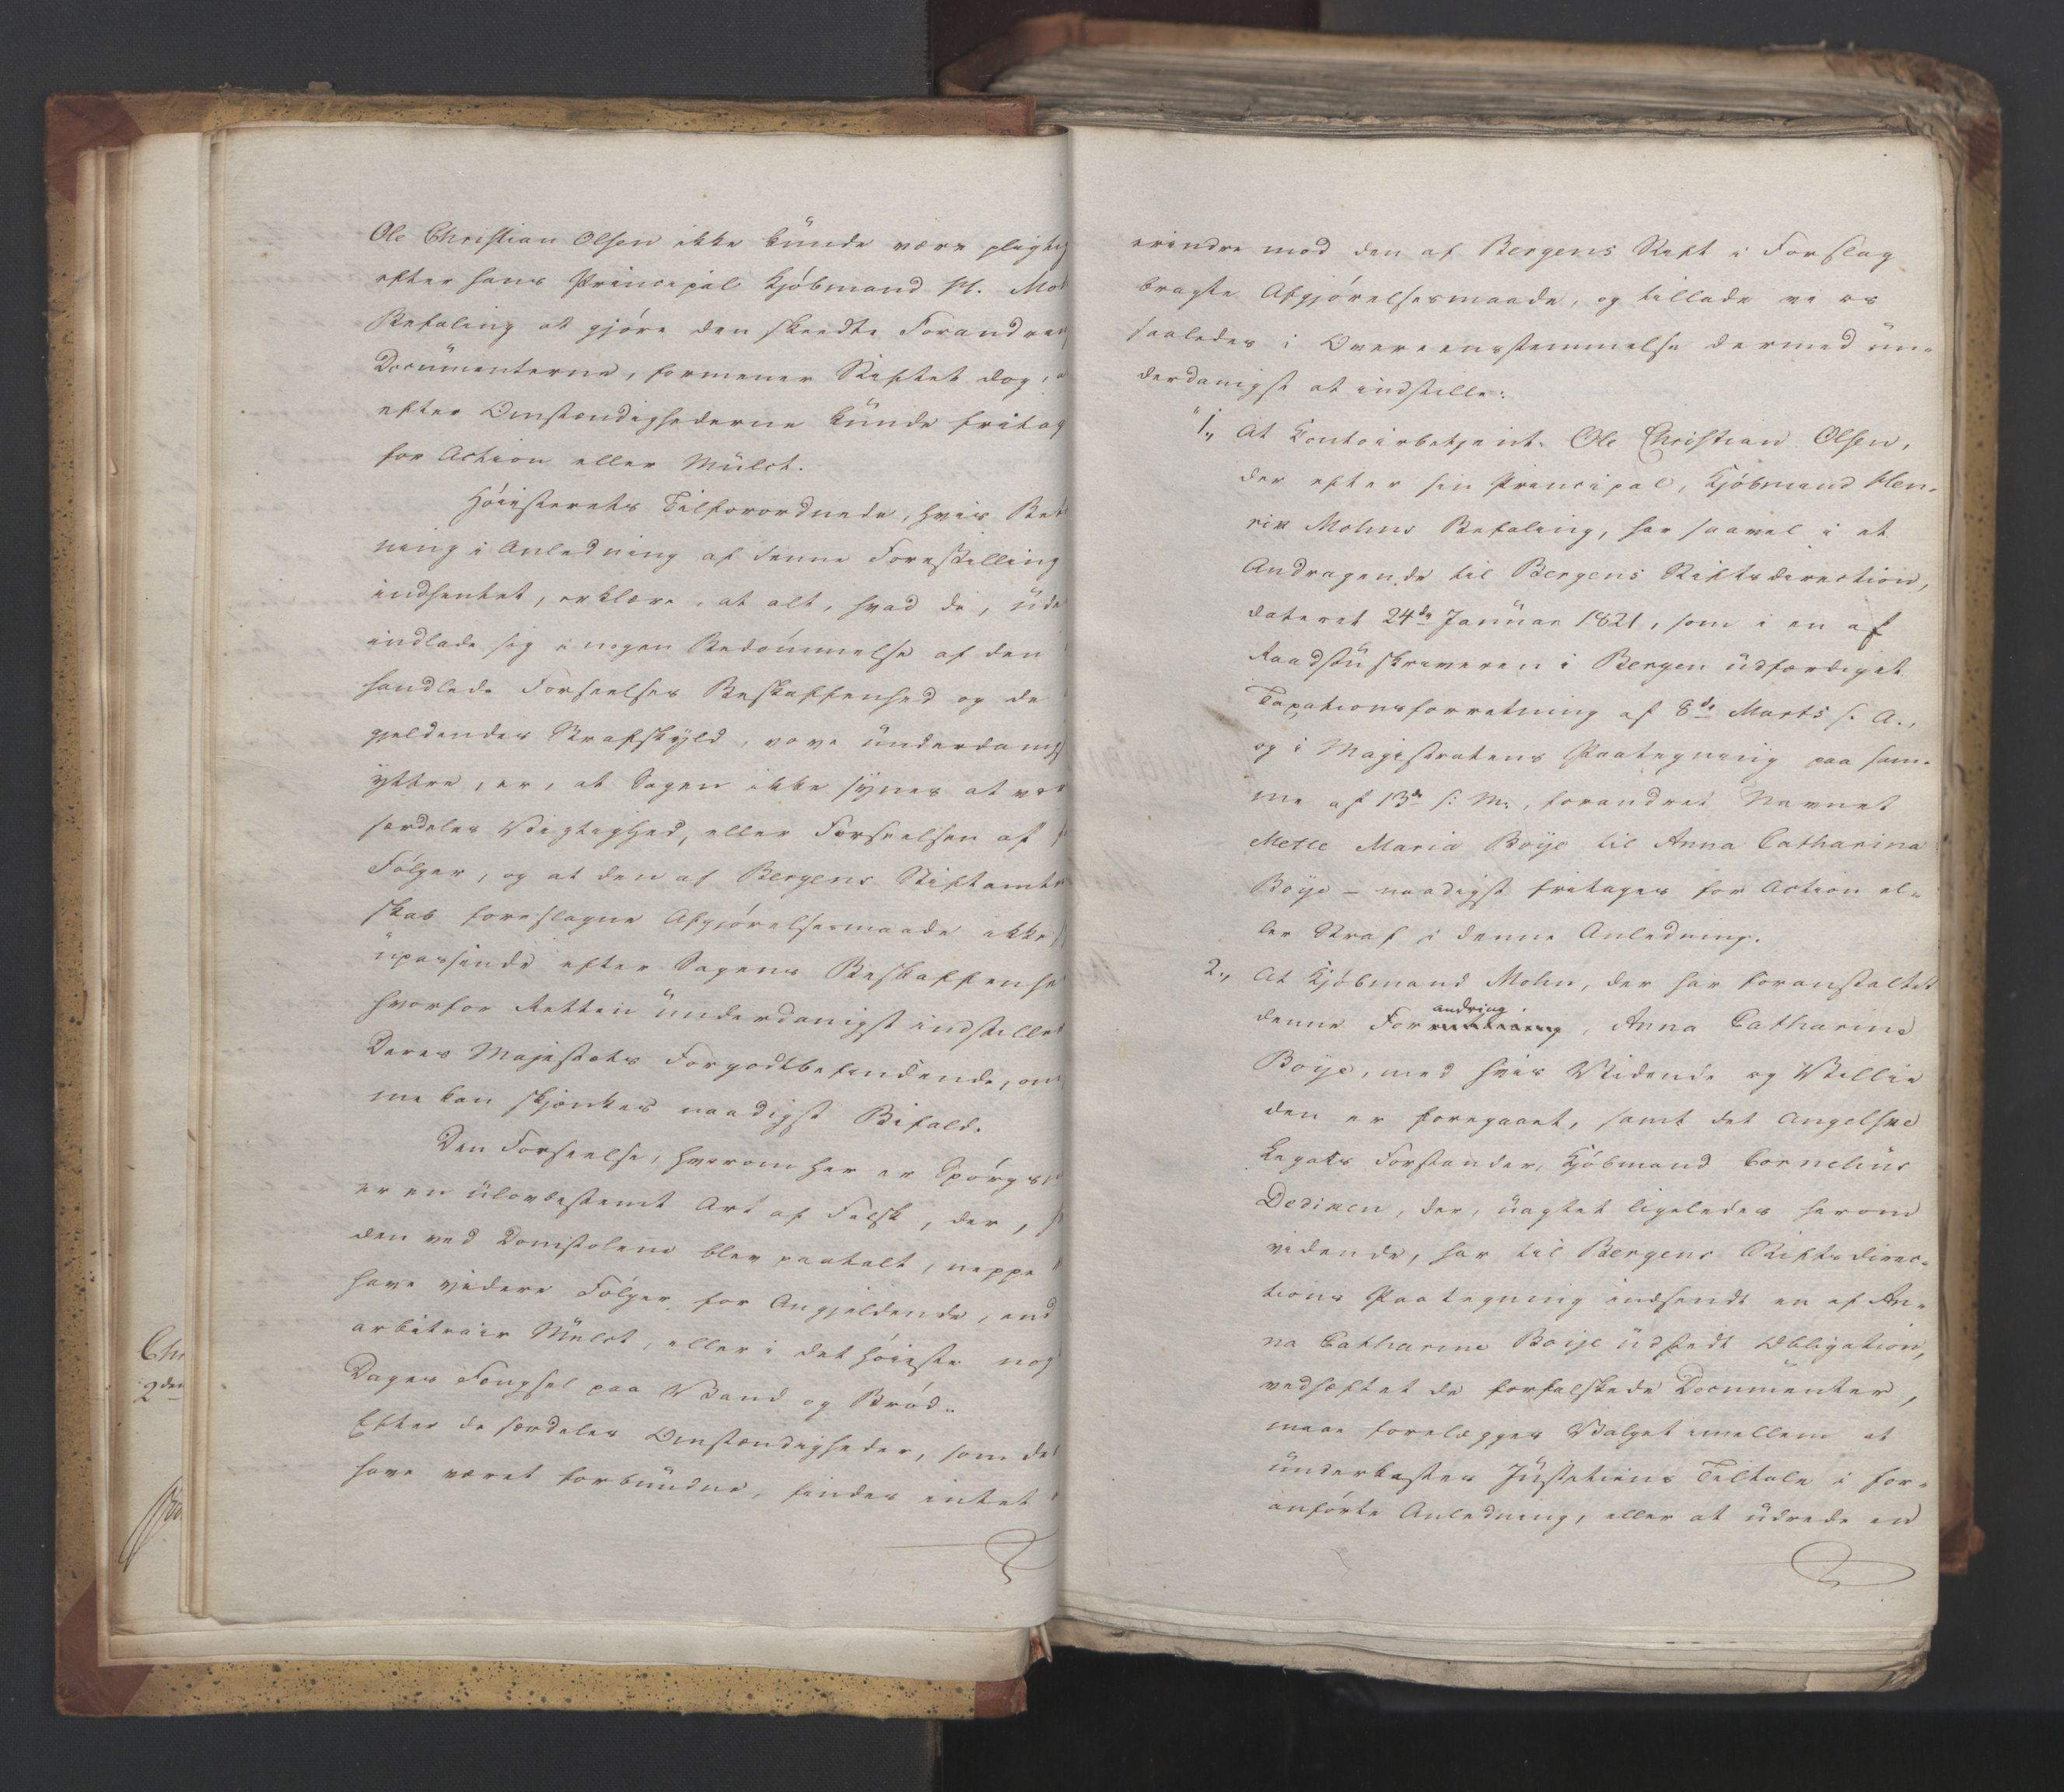 Ole Christian Olsen ikke kunde være pligtig
efter hans Principal Kjöbmand H. Moh
Befaling at gjöre den skeedte Forandrin
Documenterne, formener Stiftet dog,
efter Omstændighederne kunde fritag
for Action eller Mulct.
Höiesterets Tilforordnede, hvis Bet
ning i Anledning af denne Forestilling
indhentet, erklære, at alt, hvad de, ude
indlade sig i nogen Bedömmelse af den
handlede Forseelses Beskaffenhed og de
gjeldendes Strafskyld, vove underdanigs
yttre, er, at Sagen ikke synes at vær
særdeles Vigtighed, eller Forseelsen af
Fölger, og at den af Bergens Stiftamt
skab foreslagne Afgjörelsesmaade ikke
upassende efter Sagens Beskaffenhe
hvorfor Retten underdanigst indstiller
Deres Majestæts Forgodtbefindende, om
me kan skjænkes naadigst Bifald.
Den Forseelse, hvorom her er Spörgs
er en ulovbestemt Art af Falsk, der,
den ved Domstolene blev paatalt, neppe
have videre Fölger for Angjeldende, end
arbitrair Mulct, eller i det höieste nog
Dages Fængsel paa Vand og Bröd.
Efter de særdeles Omstændigheder, som de
have været forbundne, findes intet
erindre mod den af Bergens Stift i Forslag
bragte Afgjörelsesmaade, og tillade vi os
saaledes i Overeensstemmelse dermed un-
derdanigst at indstille:
"1., At Contoirbetjent Ole Christian Olsen,
der efter sin Principal, Kjöbmand Hen-
rik Mohns Befaling, har saavel i et
Andragende til Bergens Stiftsdirection,
dateret 24de Januar 1821, som i en af
Raadstuskriveren i Bergen udfærdiget
Taxationsforretning af 8de Marts s. A.,
og i Magistratens Paategning paa sam-
me af 13de s: M., forandret Navnet
Mette Maria Böije til Anna Catharina
Böije – naadigst fritages for Action el-
ler Straf i denne Anledning.
2., At Kjöbmand Mohn, der har foranstaltet
andring
denne For, Anna Catharine
Böije, med hvis Vidende og Villie
den er foregaaet, samt det Angelske
Legats Forstander, Kjöbmand Cornelius
Dedixen, der, uagtet ligeledes herom
vidende, har til Bergens Stiftsdirec-
tions Paategning indsendt en af An-
na Catharine Böije udstedt Obligation,
vedhæftet de forfalskede Documenter,
maae forelægges Valget imellem at
underkastes Justitiens Tiltale i for-
anförte Anledning, eller at udrede en
Chr
2den